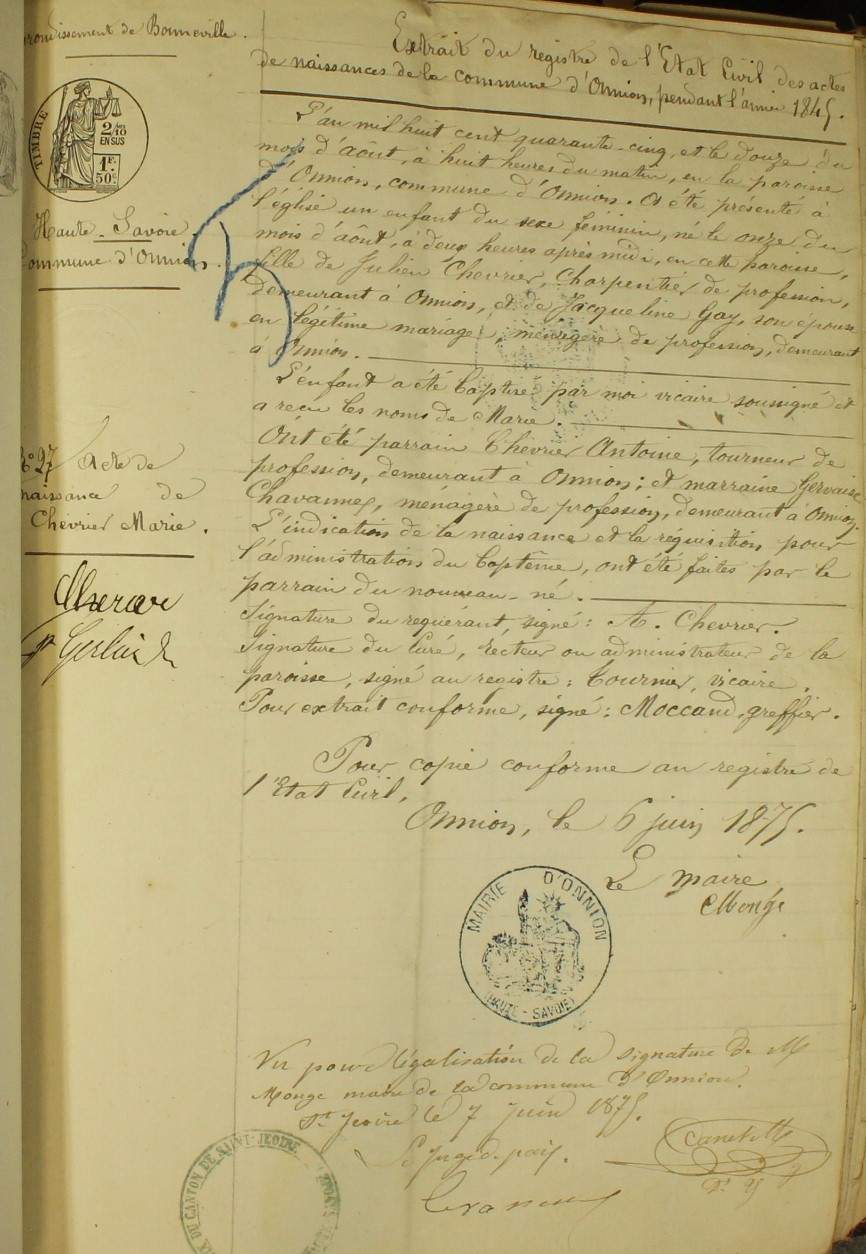 rondissement de Bonneville.
TIMBRE
2/10
EN SUS
1F.
50c.
Haute-Savoie.
Commune d'Onnion.
N° 27 Acte de
naissance de
Chevrier Marie.
Extrait du registre de l'Etat Civil des actes
de naissances de la commune d'Onnion, pendant l'année 1845.
L'an mil huit cent quarante-cinq, et le douze du
mois d'aôut, à huit heures du matin, en la paroisse
d'Onnion, commune d'Onnion. A été présenté à
l'église un enfant du sexe féminin, né le onze du
mois d'aôut, à deux heures après midi, en cette paroisse,
fille de Julien Chevrier, Charpentier de profession,
demeurant à Onnion, et de Jacqueline Gay, son épouse
en légitime mariage, ménagère de profession, demeurant
à Onnion.
L'enfant a été baptisé par moi vicaire soussigné et
a reçu les noms de Marie.
Ont été parrain Chevrier Antoine, tourneur de
profession, demeurant à Onnion; et marraine Gervaise
Chavannes, ménagère de profession, demeurant à Onnion.
L'indication de la naissance et la réquisition pour
l'administration du baptême, ont été faites par le
parrain du nouveau-né.
Signature du requérant, signé: A. Chevrier.
Signature du curé, recteur ou administrateur de la
paroisse, signé au registre: Tournier, vicaire.
Pour extrait conforme, signé: Moccand, greffier.
Pour copie conforme au registre de
l'Etat Civil.
Onnion, le 6 juin 1875.
Le maire
Monge
MAIRIE D'ONNION
(HAUTE-SAVOIE)
Vu pour légalisation de la signature de M
Monge maire de la commune d'Onnion.
St Jeoire le 7 Juin 1875.
Le Juge de paix.
DU CANTON DE SAINT-JEOIRE